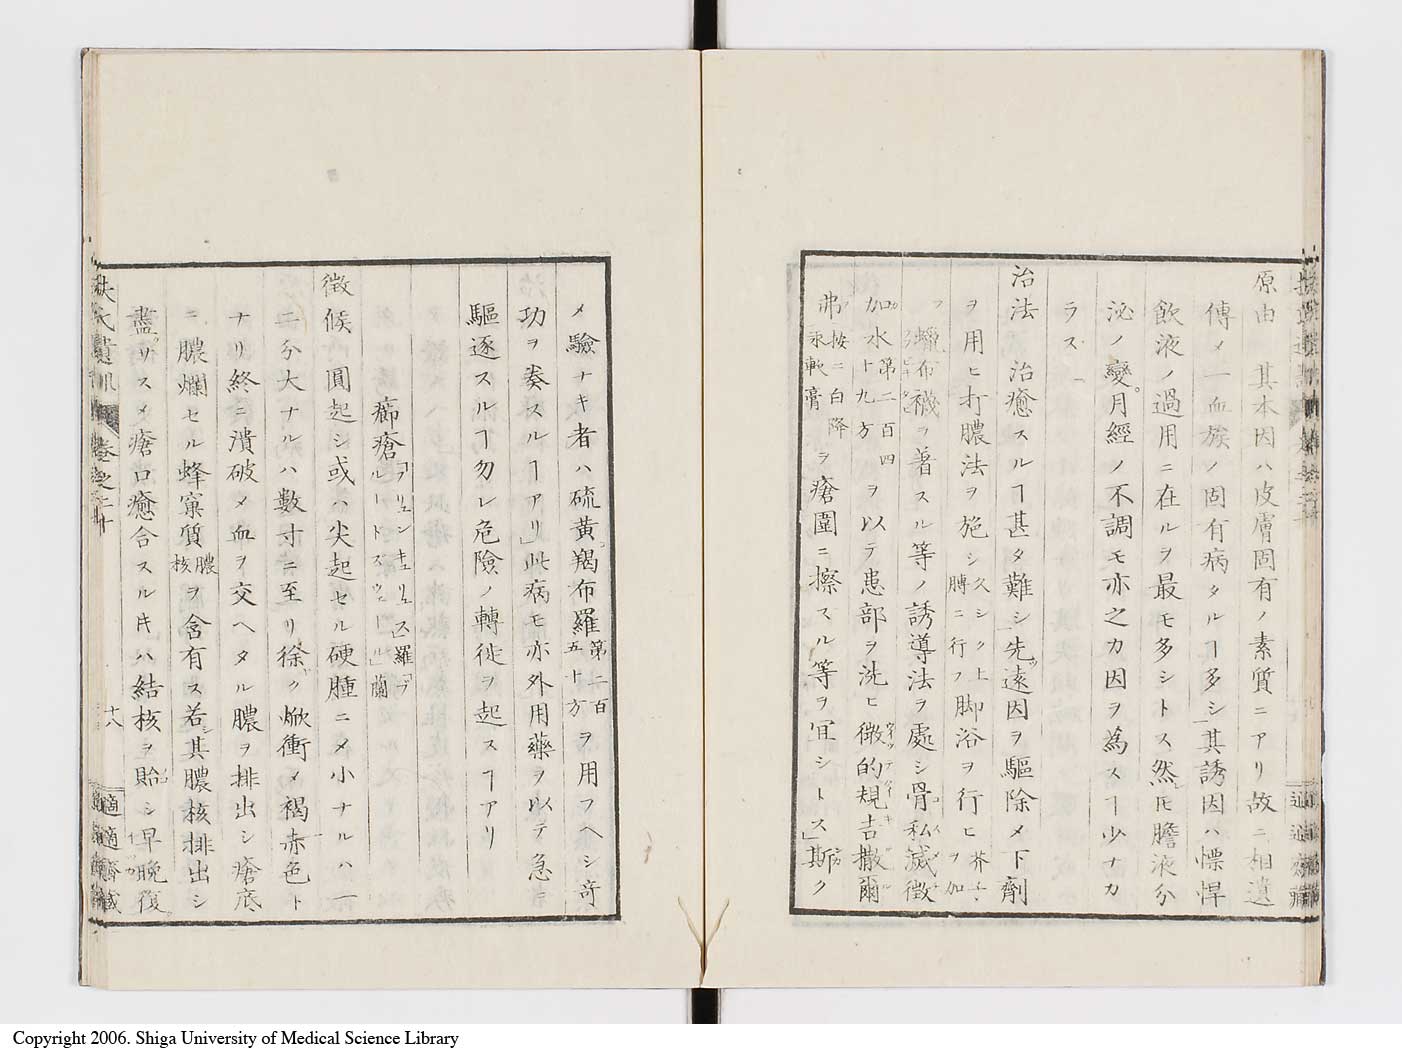 原由 其本因ハ皮膚固有ノ素質ニアリ故ニ相遺
傳メ一血族ノ固有病タルヿ多シ其誘因ハ慓悍
飲液ノ過用ニ在ルヲ最モ多シトス然𪜈膽液分
泌ノ變月經ノ不調モ亦之カ因ヲ為スヿ少ナカ
ラス
治法 治癒スルヿ甚タ難シ先遠因ヲ驅除メ下劑
ヲ用ヒ打膿法ヲ施シ久シク上膊ニ行フ脚浴ヲ行ヒ芥子ヲ加
フ蠟布襪ヲ著スル等ノ誘導法ヲ處シ骨私滅徴
加水第二百四十九方ヲ以テ患部ヲ洗ヒ微的規吉撒爾
弗按ニ白降汞軟膏ヲ瘡圍ニ擦スル等ヲ宜シトス」斯ク
メ驗ナキ者ハ硫黄羯布羅第二百五十方ヲ用フヘシ奇
功ヲ奏スルヿアリ」此病モ亦外用藥ヲ以テ急
驅逐スルヿ勿レ危險ノ轉徙ヲ起スヿアリ
癤瘡
徴候 圓起シ或ハ尖起セル硬腫ニメ小ナルハ一
二分大ナルハ數寸ニ至リ徐ク焮衝メ褐赤色ト
ナリ終ニ潰破メ血ヲ交ヘタル膿ヲ排出シ瘡底
ニ膿爛セル蜂窠質膿核ヲ含有ス若シ其膿核排出シ
盡リスメ瘡口癒合スル𪜈ハ結核ヲ貽シ早晩復
扶氏遺訓 卷之二十
十八
適適齋藏